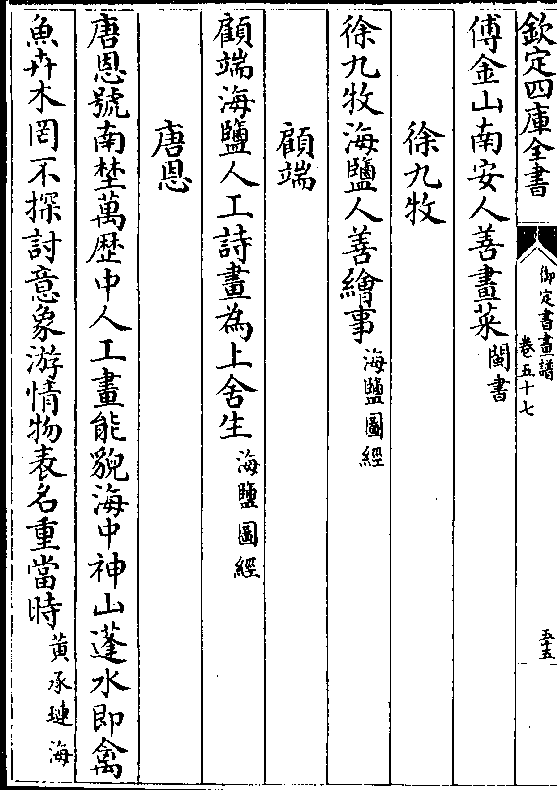 欽定四庫全書
御定書畫譜
卷五十七
五五
傅金山南安人善畫菜閩書
徐九牧
徐九牧海鹽人善繪事海鹽圖經
顧端
顧端海鹽人工詩畫為上舍生海鹽圖經
唐恩
唐恩號南埜萬歴中人工畫能貌海中神山蓬水即禽
魚卉木罔不探討意象游情物表名重當時黄承璉海